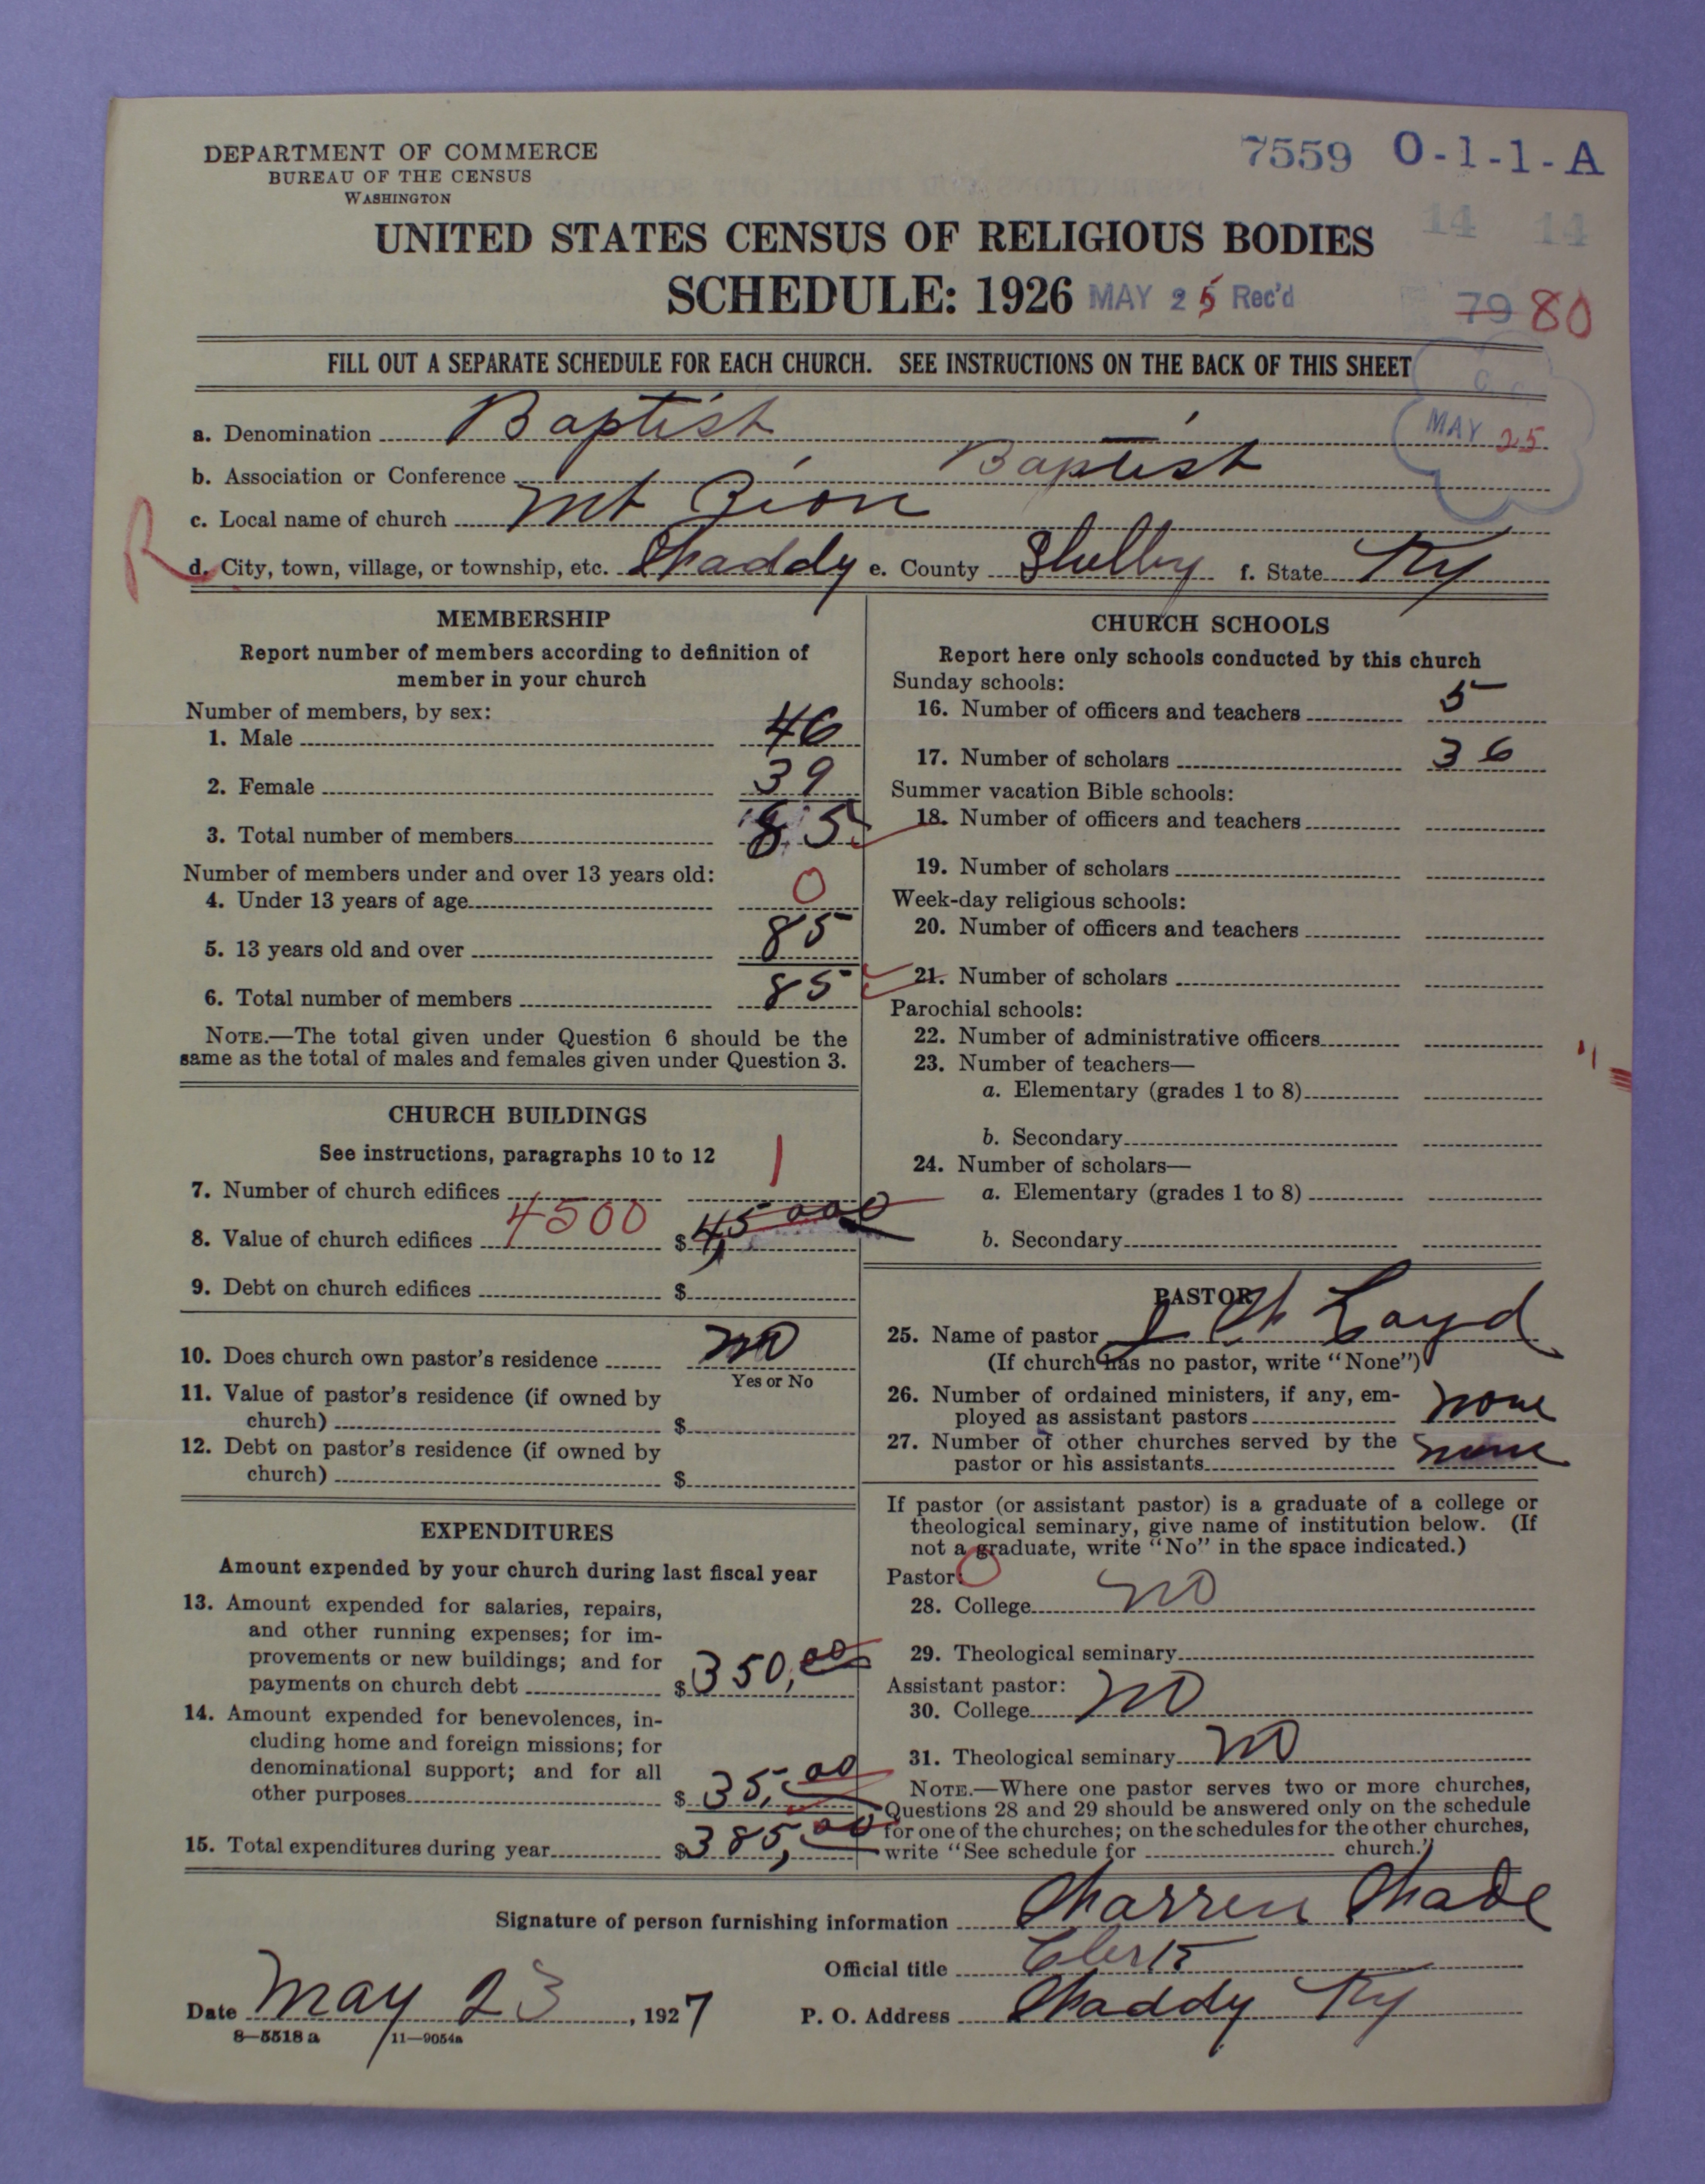 DEPARTMENT OF COMMERCE
BUREAU OF THE CENSUS
WASHINGTON
7559 O-1-1-A
14 14
UNITED STATES CENSUS OF RELIGIOUS BODIES
SCHEDULE: 1926 MAY 25 Rec'd
79 80
FILL OUT A SEPARATE SCHEDULE FOR EACH CHURCH. SEE INSTRUCTIONS ON THE BACK OF THIS SHEET
MAY 25
a. Denomination Baptist
b. Association or Conference Baptist
c. Local name of church Mt Zion
R
d. City, town, village, or township, etc. Shaddy e. County Shelby f. State Ky
MEMBERSHIP
Report number of members according to definition of
member in your church
Number of members, by sex:
1. Male 46
2. Female 39
3. Total number of members 85
Number of members under and over 13 years old:
4. Under 13 years of age 0
5. 13 years old and over 85
6. Total number of members 85
NOTE.—The total given under Question 6 should be the
same as the total of males and females given under Question 3.
CHURCH BUILDINGS
See instructions, paragraphs 10 to 12
7. Number of church edifices 1
8. Value of church edifices 4500 $45000
9. Debt on church edifices $
10. Does church own pastor's residence no
Yes or No
11. Value of pastor's residence (if owned by
church) $
12. Debt on pastor's residence (if owned by
church) $
EXPENDITURES
Amount expended by your church during last fiscal year
13. Amount expended for salaries, repairs,
and other running expenses; for im-
provements or new buildings; and for
payments on church debt $350,00
14. Amount expended for benevolences, in-
cluding home and foreign missions; for
denominational support; and for all
other purposes $35,00
15. Total expenditures during year $385,00
CHURCH SCHOOLS
Report here only schools conducted by this church
Sunday schools:
16. Number of officers and teachers 5
17. Number of scholars 36
Summer vacation Bible schools:
18. Number of officers and teachers
19. Number of scholars
Week-day religious schools:
20. Number of officers and teachers
21. Number of scholars
Parochial schools:
22. Number of administrative officers
23. Number of teachers—
a. Elementary (grades 1 to 8)
b. Secondary
24. Number of scholars—
a. Elementary (grades 1 to 8)
b. Secondary
PASTOR
25. Name of pastor Loyd
(If church has no pastor, write "None")
26. Number of ordained ministers, if any, em-
ployed as assistant pastors none
27. Number of other churches served by the
pastor or his assistants none
If pastor (or assistant pastor) is a graduate of a college or
theological seminary, give name of institution below. (If
not a graduate, write "No" in the space indicated.)
Pastor: 0
28. College no
29. Theological seminary
Assistant pastor:
30. College no
31. Theological seminary no
NOTE.—Where one pastor serves two or more churches,
Questions 28 and 29 should be answered only on the schedule
for one of the churches; on the schedules for the other churches,
write "See schedule for church."
Signature of person furnishing information
Official title Clerk
Date May 23, 1927 P. O. Address Shaddy Ky
8—5518 a 11—9054a